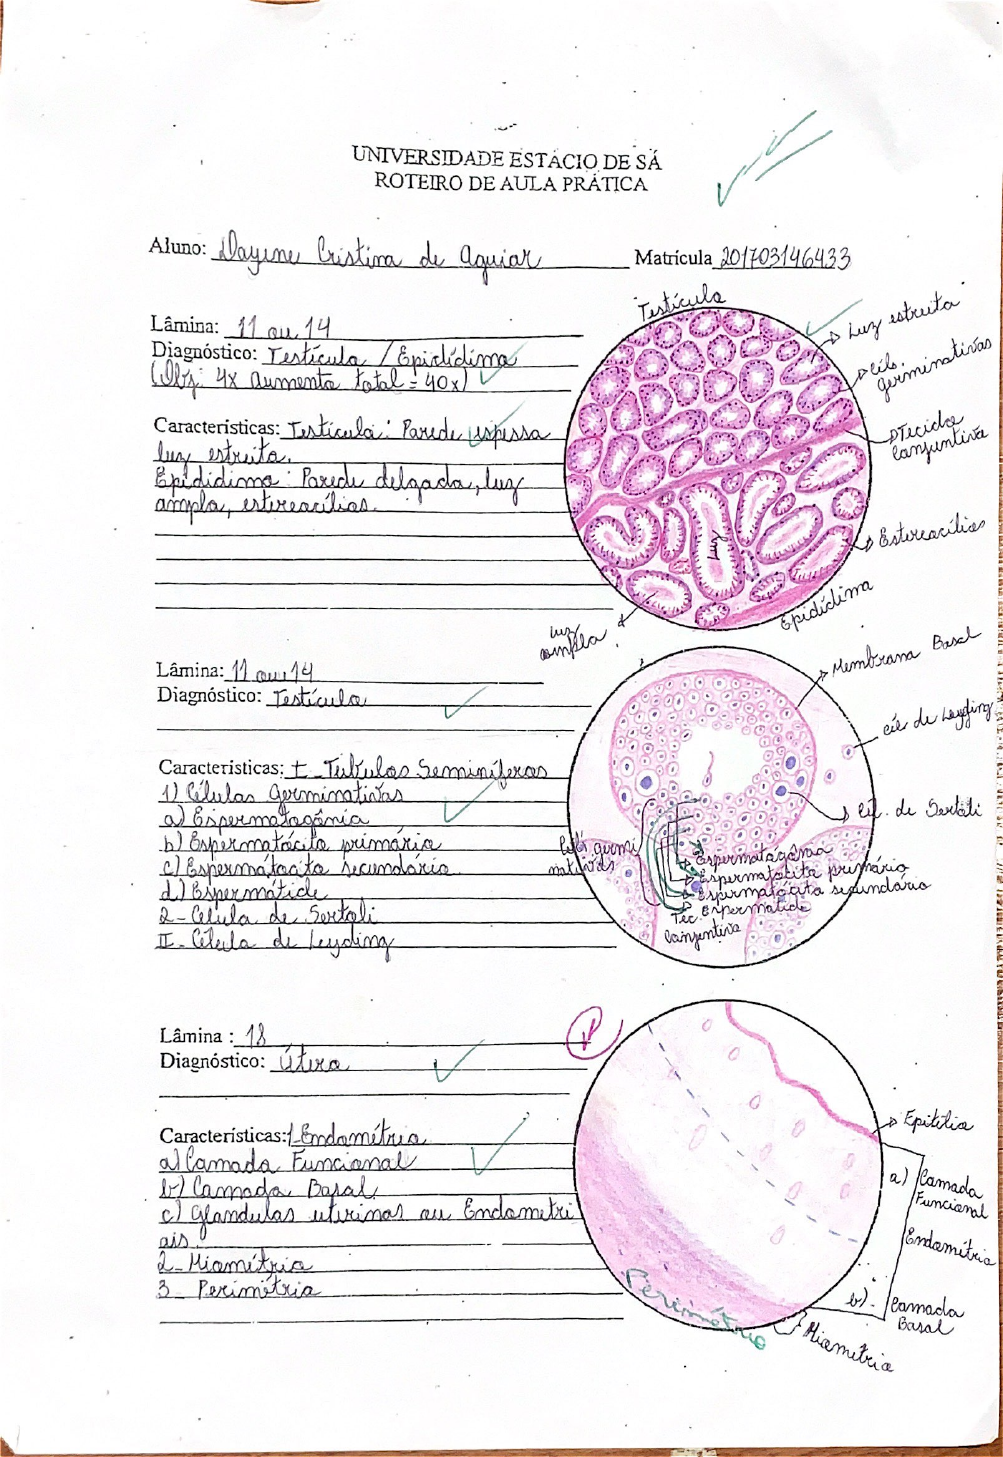 UNIVERSIDADE ESTÁCIO DE SÁ
ROTEIRO DE AULA PRÁTICA
Aluno: Dayene Cristina de Aguiar
Matrícula 201703146433
Lâmina: 11 ou 14
Diagnóstico: Testículo / Epidídimo
(Obj: 4x Aumento total = 40x)
Características: Testículo: Parede espessa
luz estreita.
Epidídimo: Parede delgada, luz
ampla, estereocílios.
Testículo
Luz estreita
Cél. germinativas
Tecido
Conjuntivo
Estereocílios
Luz
Epidídimo
luz
ampla
Lâmina: 11 ou 14
Diagnóstico: Testículo
Características: I - Túbulos Seminíferos
1) Células Germinativas
a) Espermatogônia
b) Espermatócito primário
c) Espermatocito secundário
d) Espermátide
2- Célula de Sertoli
II- Célula de Leyding
Membrana Basal
cél. de Leyding
Cél. de Sertoli
Cél. germi
nativas
Espermatogônia
Espermatócito primário
Espermatócito secundário
Espermatide
Tec.
Conjuntivo
Lâmina : 18
Diagnóstico: Útero
Características: 1-Endométrio
a) Camada Funcional
b) Camada Basal
c) Glândulas uterinas ou Endometri
ais.
2- Miométrio
3- Perimétrio
Epitélio
a) Camada
Funcional
Endométrio
b)- Camada
Basal
Miométrio
Perimétrio